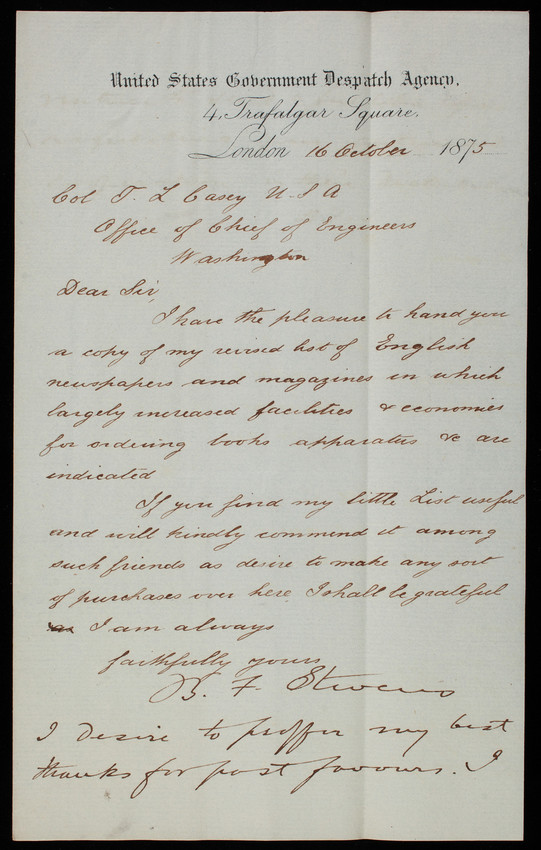 United States Government Despatch Agency.
4, Trafalgar Square.
London 16 October 1875
Col T. L Casey U.S A
Office of Chief of Engineers
Washington
Dear Sir,
I have the pleasure to hand you
a copy of my revised list of English
newspapers and magazines in which
largely increased facilities & economies
for ordering books apparatus &c are
indicated
If you find my little List useful
and will kindly commend it among
such friends as desire to make any sort
of purchases over here I shall be grateful
I am always
faithfully yours
B. F. Stevens
I desire to proffer my best
thanks for past favours. I